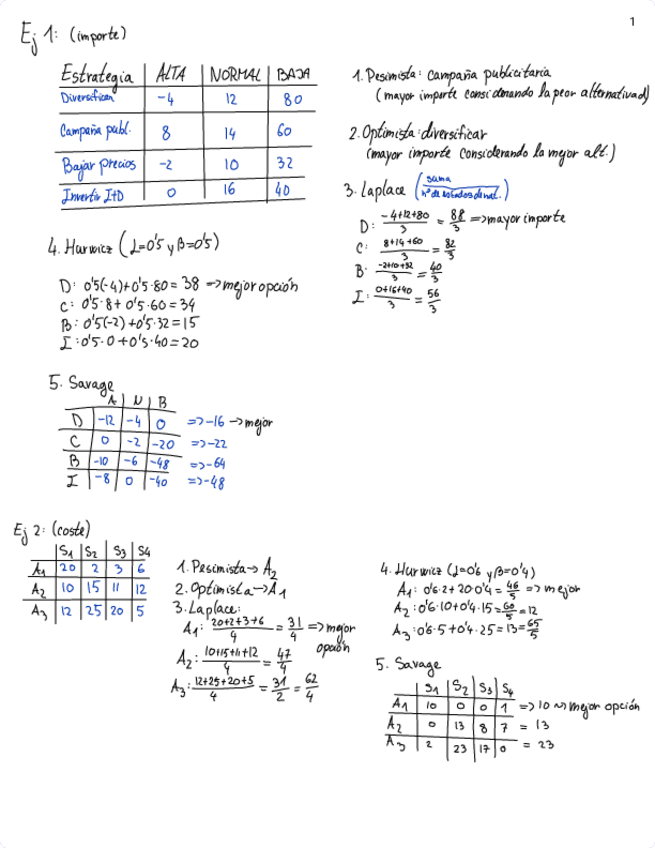 1
Ej 1: (importe)
Estrategia | ALTA | NORMAL | BAJA
Diversifican | -4 | 12 | 80
Campaña publ. | 8 | 14 | 60
Bajar precios | -2 | 10 | 32
Invertir I+D | 0 | 16 | 40
1. Pesimista: campaña publicitaria
(mayor importe considerando la peor alternativa)
2. Optimista: diversificar
(mayor importe considerando la mejor alt.)
3. Laplace (suma / nº de estados de nat.)
D: -4+12+80 / 3 = 88/3 => mayor importe
C: 8+14+60 / 3 = 82/3
B: -2+10+32 / 3 = 40/3
I: 0+16+40 / 3 = 56/3
4. Hurwicz (α=0'5 y β=0'5)
D: 0'5(-4)+0'5·80 = 38 -> mejor opción
C: 0'5·8+0'5·60 = 34
B: 0'5(-2)+0'5·32 = 15
I: 0'5·0+0'5·40 = 20
5. Savage
A | N | B
D | -12 | -4 | 0 => -16 -> mejor
C | 0 | -2 | -20 => -22
B | -10 | -6 | -48 => -64
I | -8 | 0 | -40 => -48
Ej 2: (coste)
S1 | S2 | S3 | S4
A1 | 20 | 2 | 3 | 6
A2 | 10 | 15 | 11 | 12
A3 | 12 | 25 | 20 | 5
1. Pesimista -> A2
2. Optimista -> A1
3. Laplace:
A1: 20+2+3+6 / 4 = 31/4 => mejor opción
A2: 10+15+11+12 / 4 = 47/4
A3: 12+25+20+5 / 4 = 31/2 = 62/4
4. Hurwicz (α=0'6 y β=0'4)
A1: 0'6·2+20·0'4 = 46/5 => mejor
A2: 0'6·10+0'4·15 = 60/5 = 12
A3: 0'6·5+0'4·25 = 13 = 65/5
5. Savage
S1 | S2 | S3 | S4
A1 | 10 | 0 | 0 | 1 => 10 ~> mejor opción
A2 | 0 | 13 | 8 | 7 = 13
A3 | 2 | 23 | 17 | 0 = 23